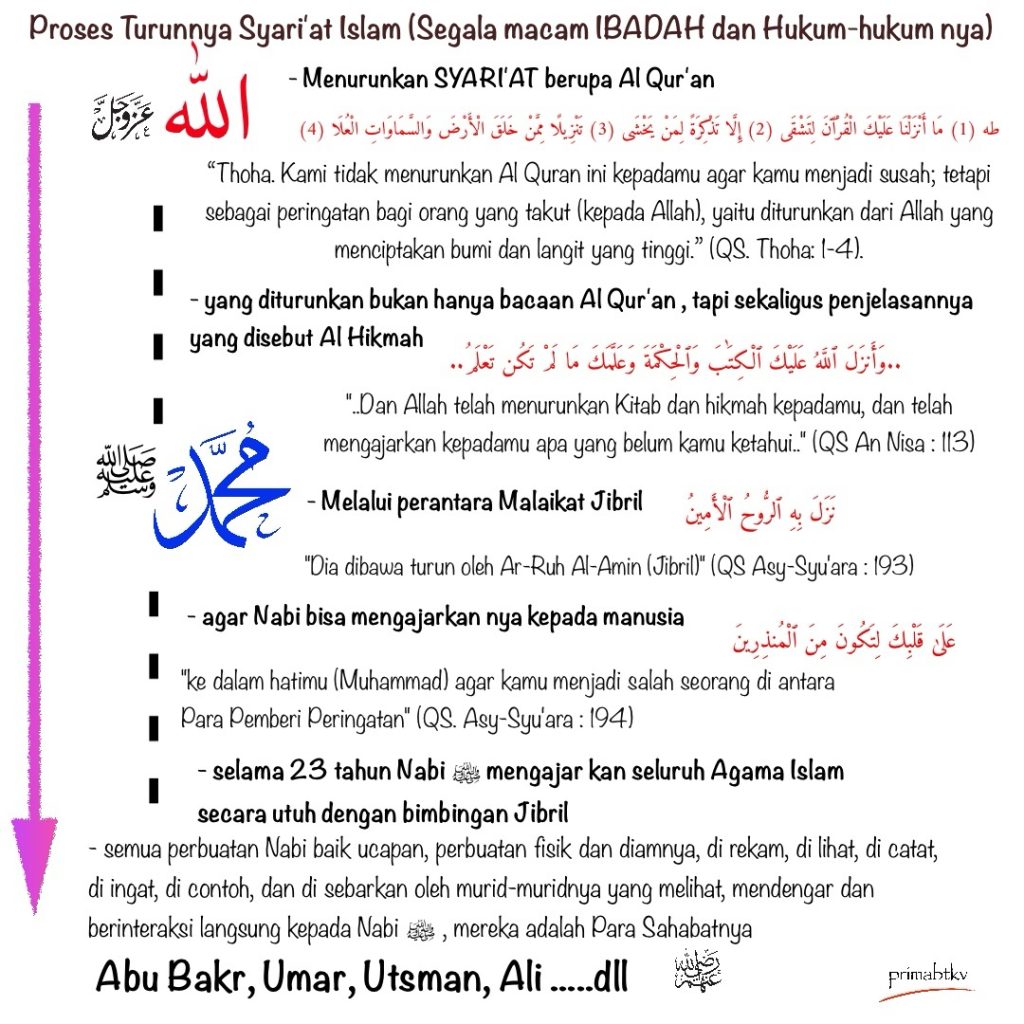 Proses Turunnya Syari'at Islam (Segala macam IBADAH dan Hukum-hukum nya)
- Menurunkan SYARI'AT berupa Al Qur'an
الله عز وجل
طه (1) مَا أَنْزَلْنَا عَلَيْكَ الْقُرْآنَ لِتَشْقَى (2) إِلَّا تَذْكِرَةً لِمَنْ يَخْشَى (3) تَنْزِيلًا مِمَّنْ خَلَقَ الْأَرْضَ وَالسَّمَاوَاتِ الْعُلَا (4)
“Thoha. Kami tidak menurunkan Al Quran ini kepadamu agar kamu menjadi susah; tetapi
sebagai peringatan bagi orang yang takut (kepada Allah), yaitu diturunkan dari Allah yang
menciptakan bumi dan langit yang tinggi.” (QS. Thoha: 1-4).
- yang diturunkan bukan hanya bacaan Al Qur'an , tapi sekaligus penjelasannya
yang disebut Al Hikmah
..وَأَنزَلَ ٱللَّهُ عَلَيْكَ ٱلْكِتَٰبَ وَٱلْحِكْمَةَ وَعَلَّمَكَ مَا لَمْ تَكُن تَعْلَمُ..
"..Dan Allah telah menurunkan Kitab dan hikmah kepadamu, dan telah
mengajarkan kepadamu apa yang belum kamu ketahui.." (QS An Nisa : 113)
محمد صلى الله عليه وسلم
- Melalui perantara Malaikat Jibril
نَزَلَ بِهِ ٱلرُّوحُ ٱلْأَمِينُ
"Dia dibawa turun oleh Ar-Ruh Al-Amin (Jibril)" (QS Asy-Syu'ara : 193)
- agar Nabi bisa mengajarkan nya kepada manusia
عَلَىٰ قَلْبِكَ لِتَكُونَ مِنَ ٱلْمُنذِرِينَ
"ke dalam hatimu (Muhammad) agar kamu menjadi salah seorang di antara
Para Pemberi Peringatan" (QS. Asy-Syu'ara : 194)
- selama 23 tahun Nabi ﷺ mengajar kan seluruh Agama Islam
secara utuh dengan bimbingan Jibril
- semua perbuatan Nabi baik ucapan, perbuatan fisik dan diamnya, di rekam, di lihat, di catat,
di ingat, di contoh, dan di sebarkan oleh murid-muridnya yang melihat, mendengar dan
berinteraksi langsung kepada Nabi ﷺ , mereka adalah Para Sahabatnya
Abu Bakr, Umar, Utsman, Ali .....dll رضي الله عنهم
primabtkv